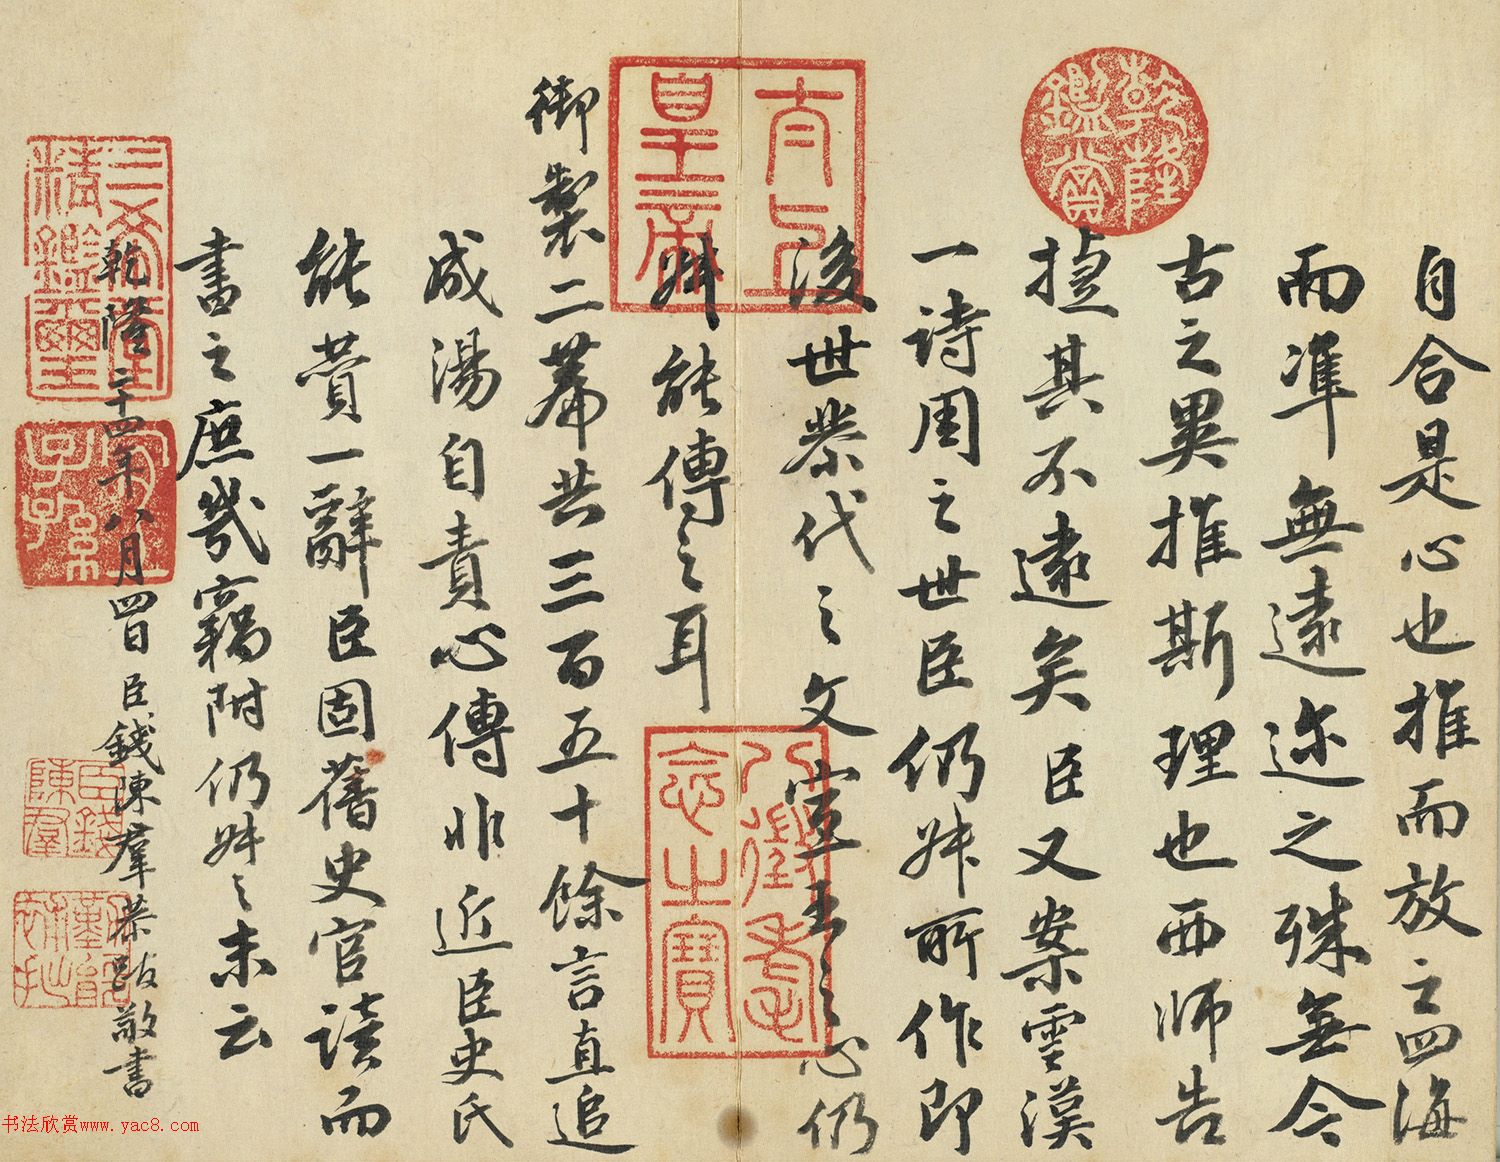 自合是心也推而放之四海
而準無遠迩之殊無今
古之異推斯理也西師告
捷其不遠矣臣又案雲漢
一詩周之世臣仍叔所作即
後世柴代之文宣王之心仍
叔能傳之耳
御製二篇共三百五十餘言直追
成湯自責心傳非近臣史氏
能贊一辭臣固舊史官讀而
書之庶幾竊附仍叔之末云
乾隆二十四年八月四日臣錢陳羣恭跋敬書
乾隆鑑賞
太上皇帝
八徵耄念之寶
三希堂精鑑璽
宜子孫
臣錢陳羣
书法欣赏www.yac8.com